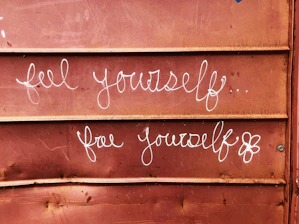 feel yourself...
for yourself